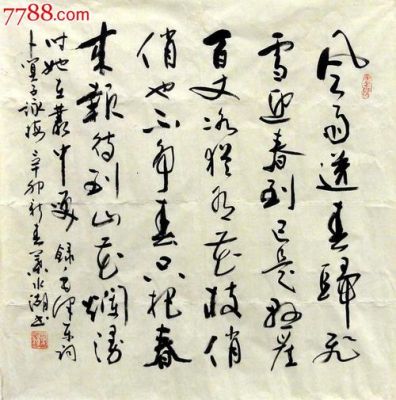 7788.com
风雨送春歸飞
雪迎春到已是悬崖
百丈冰犹有花枝俏
俏也不争春只把春
来報待到山花爛漫
时她在叢中笑 錄毛泽东词
卜算子咏梅 辛卯新春 水湖书